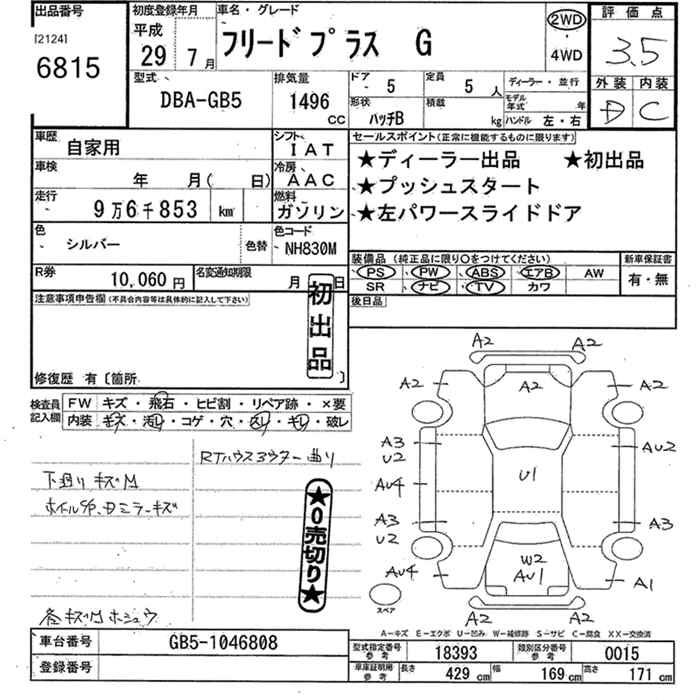 出品番号
[2124]
6815
初度登録年月
平成
29 7月
車名・グレード
フリードプラス G
2WD
4WD
評価点
3.5
外装 内装
D C
型式
DBA-GB5
排気量
1496
CC
ドア 5
定員 5人
形状 ハッチB
積載 kg
ディーラー・並行
モデル年式 年
ハンドル 左・右
車歴 自家用
シフト IAT
車検 年 月( 日)
冷房 AAC
走行 9万6千853 km
燃料 ガソリン
色 シルバー
色替
色コード NH830M
R券 10,060円
名変通知期限 月 日
セールスポイント(正常に機能するものに限ります)
★ディーラー出品 ★初出品
★プッシュスタート
★左パワースライドドア
装備品(純正品に限り○をつけてください)
PS PW ABS エアB AW
SR ナビ TV カワ
新車保証書
有・無
後日品
注意事項申告欄(不具合内容等は具体的に記入して下さい)
初出品
修復歴 有〔箇所 〕
検査員記入欄
FW キズ・飛石・ヒビ割・リペア跡・×要
内装 キズ・汚れ・コゲ・穴・スレ・キレ・破レ
RTハウスアウター曲り
下廻りキズM
★0売切り★
各キズMホシュウ
A2 A2
A2 A2 A2
A3 U2
AU2
U1
AU4
A3 U2
A3
W2
AU4 AU1 A1
A2 A2
スペア
A-キズ E-エクボ U-凹み W-補修跡 S-サビ C-腐食 XX-交換済
車台番号 GB5-1046808
登録番号
型式指定番号 参考 18393
類別区分番号 参考 0015
車庫証明用 参考 長さ 429cm 幅 169cm 高さ 171cm